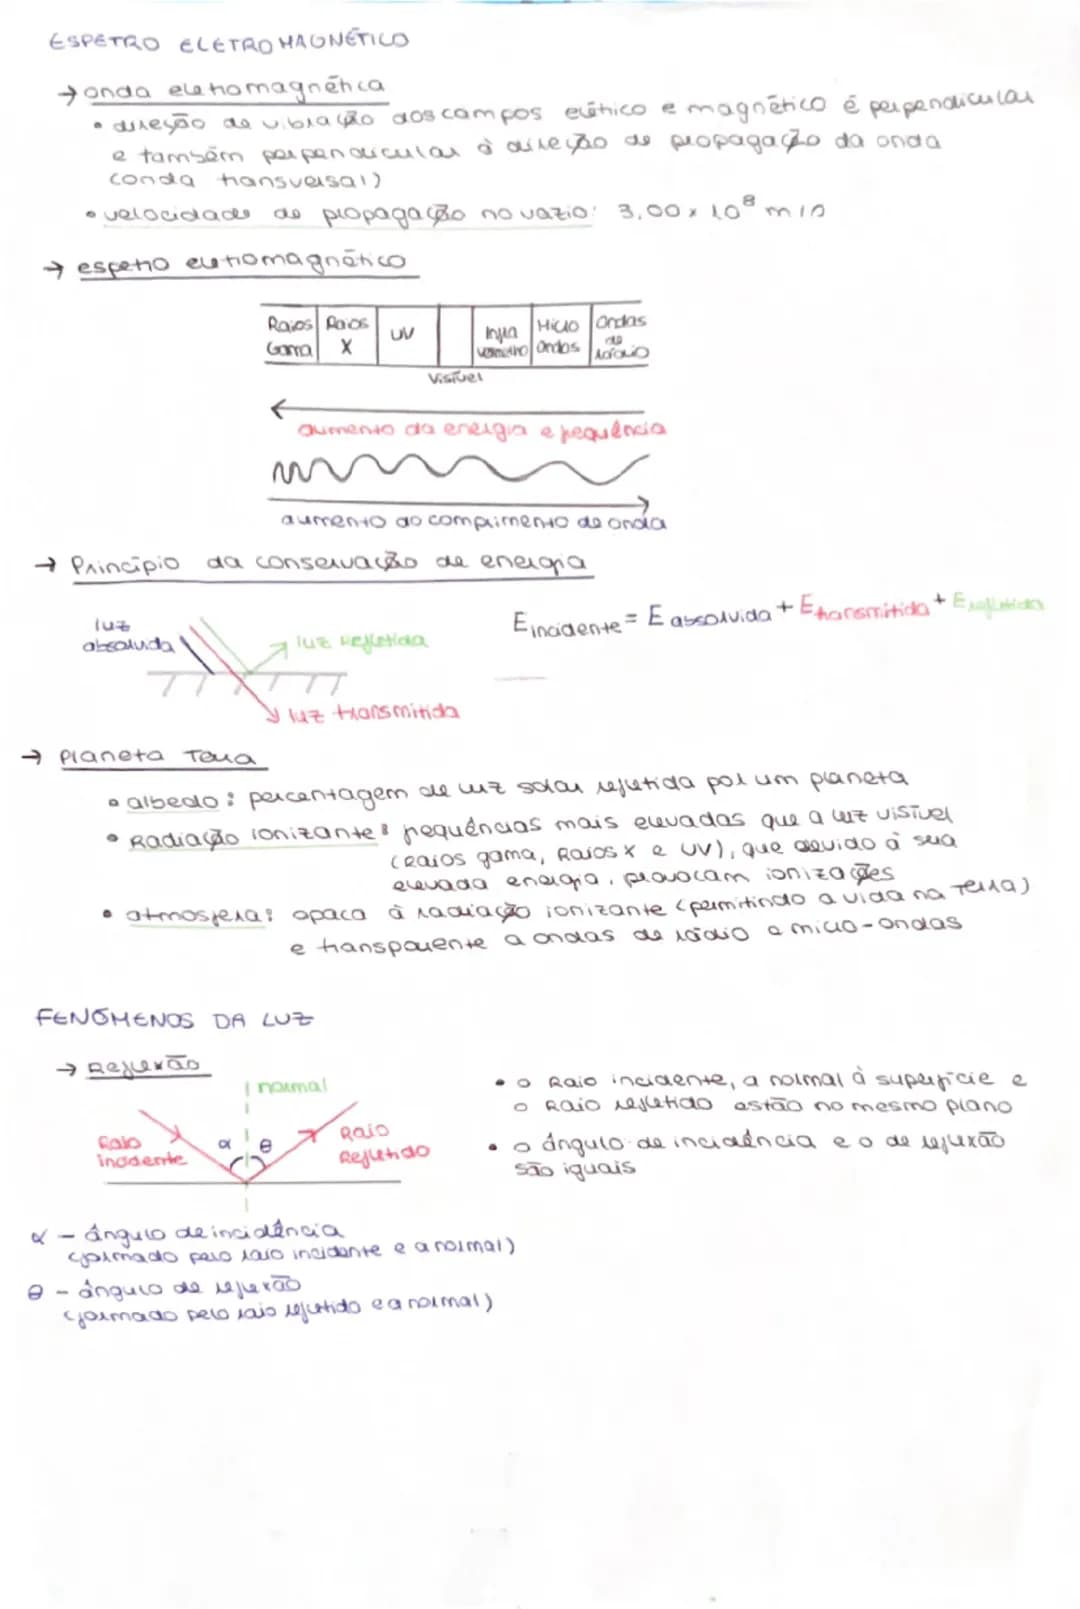 ESPETRO ELETROMAGNÉTICO
→ onda eletromagnética
• direção de vibração dos campos elétrico e magnético é perpendicular
e também perpendicular à direção de propagação da onda
(onda transversal)
• velocidade de propagação no vazio: 3,00 x 10⁸ m/s
→ espetro eletromagnético
Raios Gama | Raios X | UV | Infra vermelho | Micro ondas | Ondas de rádio
Visível
aumento da energia e frequência
aumento do comprimento de onda
→ Princípio da conservação de energia
luz absolvida
luz refletida
luz transmitida
E incidente = E absolvida + E transmitida + E refletida
→ Planeta Terra
• albedo: percentagem de luz solar refletida por um planeta
• Radiação ionizante: frequências mais elevadas que a luz visível
(Raios gama, Raios X e UV), que devido à sua
elevada energia, provocam ionizações
• atmosfera: opaca à radiação ionizante (permitindo a vida na Terra)
e transparente a ondas de rádio e micro-ondas
FENÓMENOS DA LUZ
→ Reflexão
normal
Raio incidente
α
θ
Raio Refletido
• o Raio incidente, a normal à superfície e
o Raio refletido estão no mesmo plano
• o ângulo de incidência e o de reflexão
são iguais
α - ângulo de incidência
(formado pelo raio incidente e a normal)
θ - ângulo de reflexão
(formado pelo raio refletido e a normal)